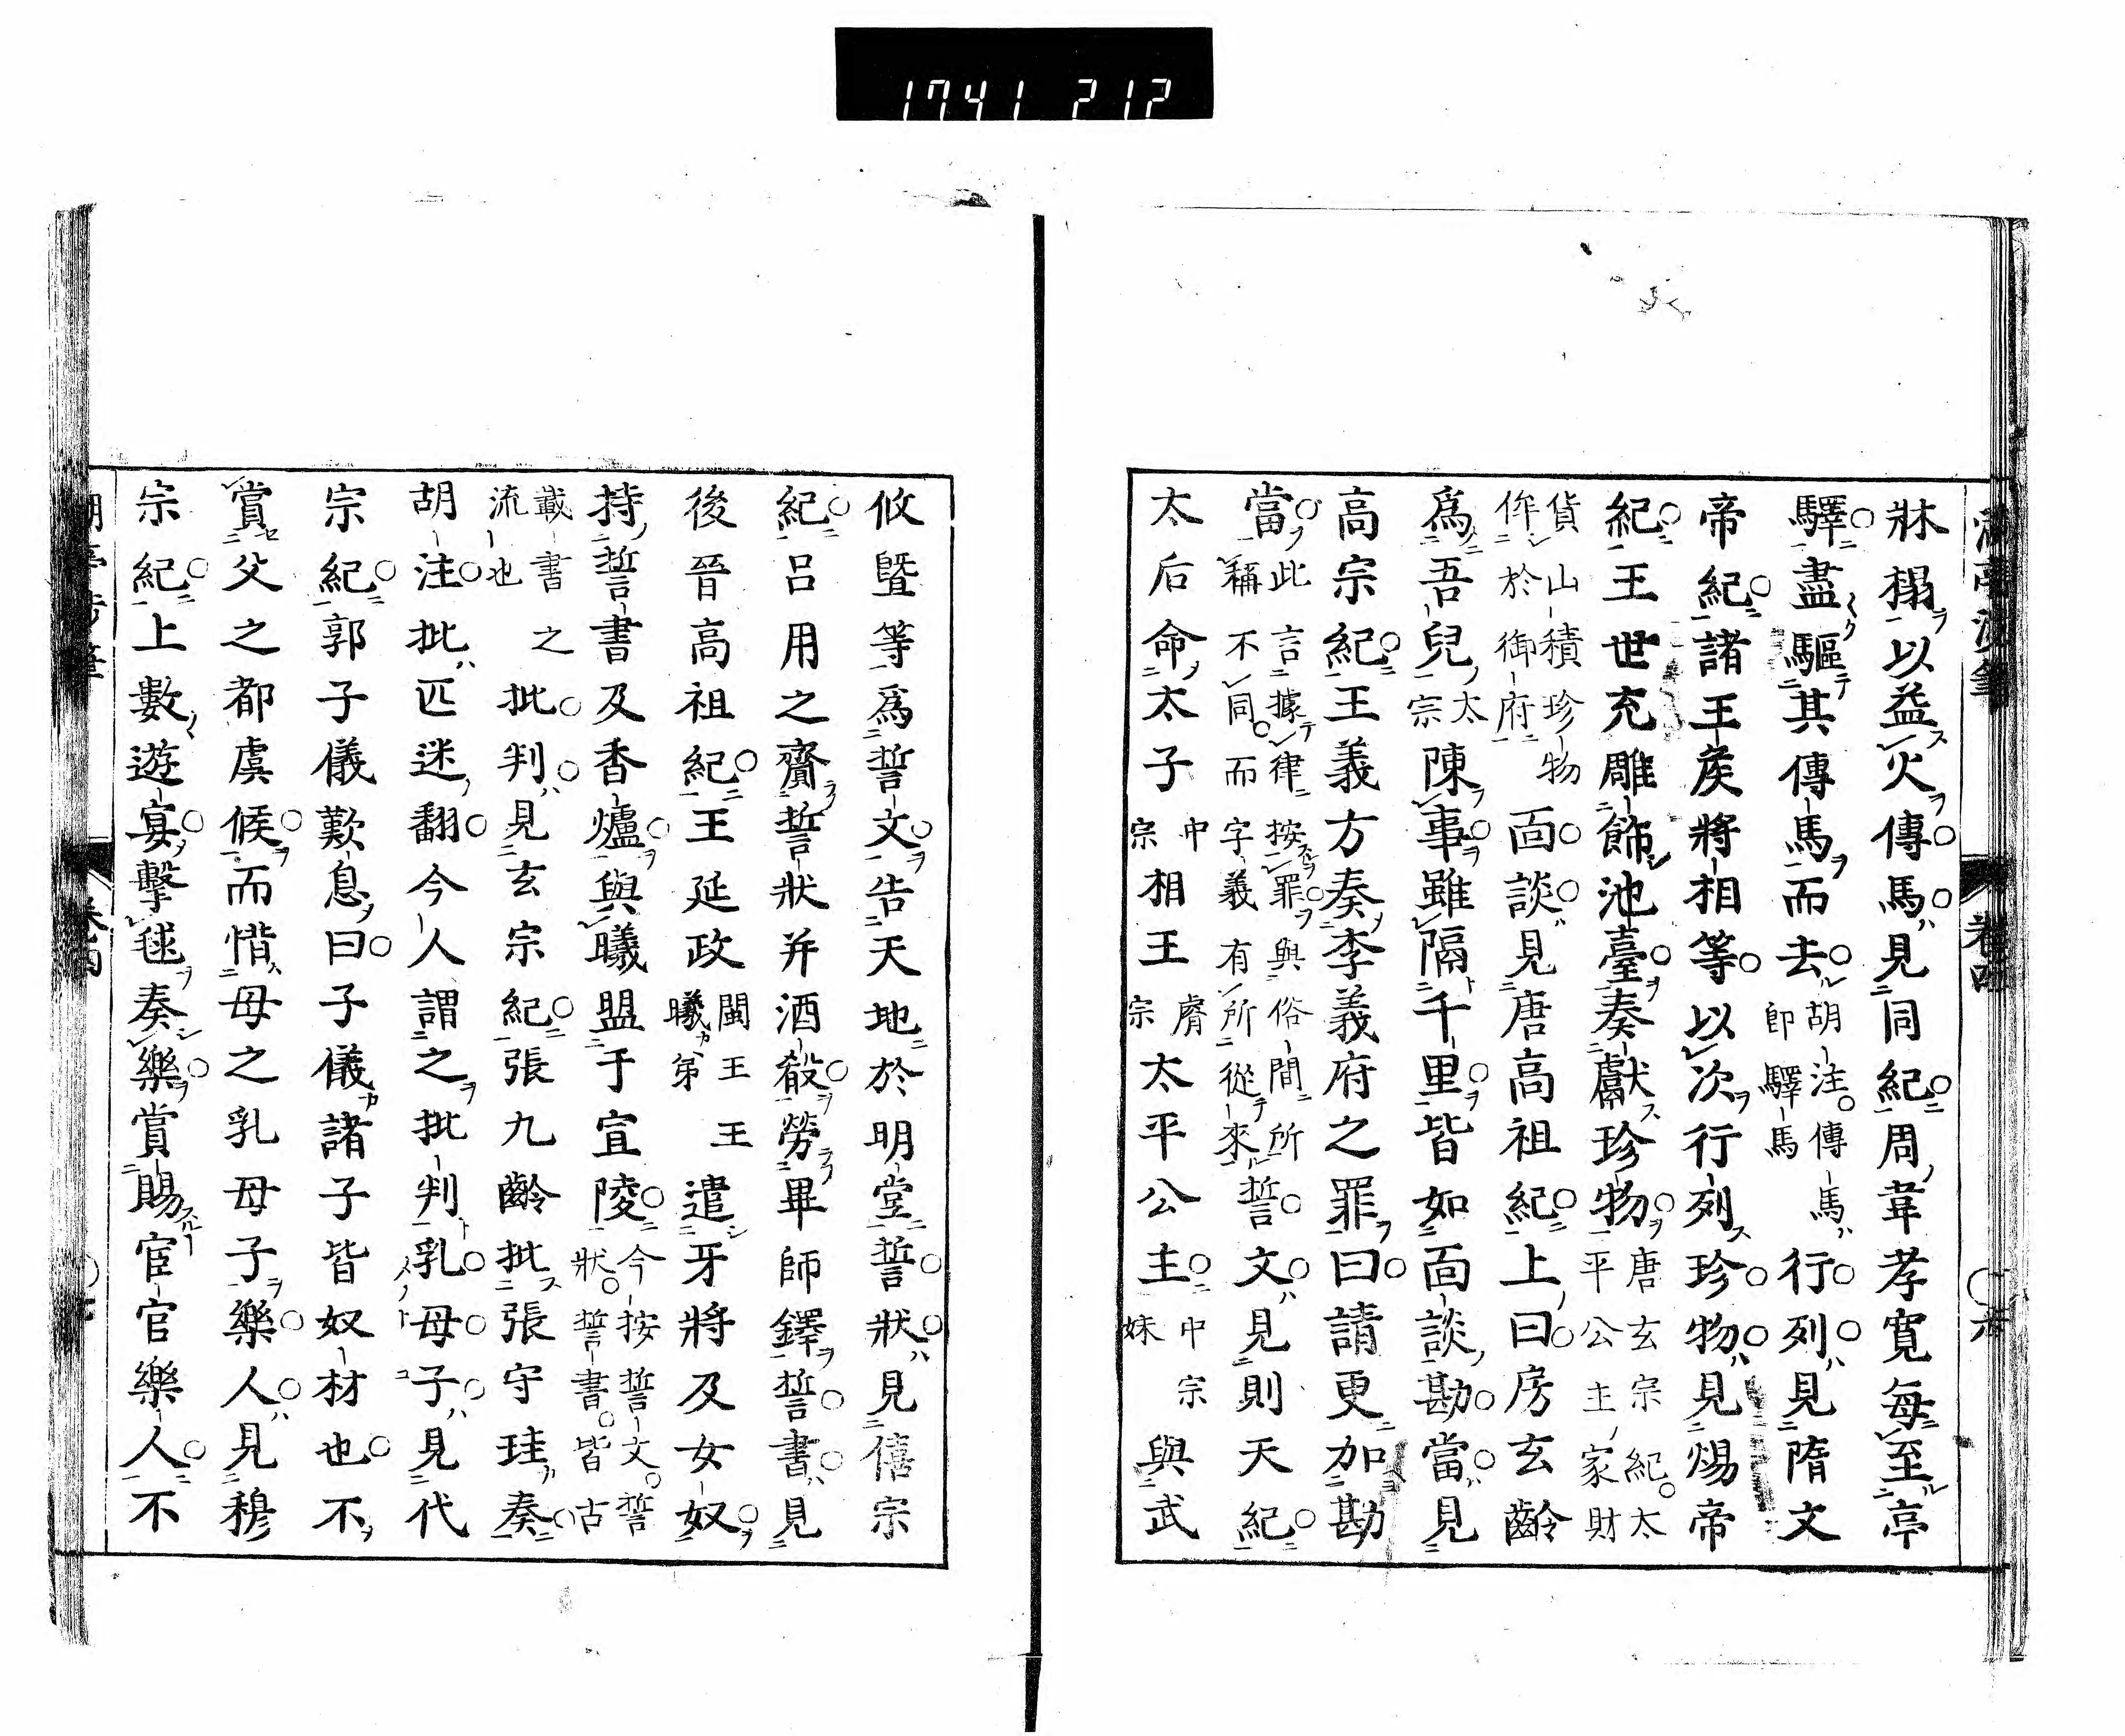 1741 212
牀榻以益火傳馬見同紀周韋孝寛毎至亭
驛盡驅其傳馬而去胡注傳馬即驛馬行列見隋文
帝紀諸王矦將相等以次行列珍物見煬帝
紀王世充雕飾池臺奏獻珍物唐玄宗紀太平公主家財
貨山積珍物侔於御府面談見唐高祖紀上曰房玄齡
爲吾兒太宗陳事雖隔千里皆如面談勘當見
高宗紀王義方奏李義府之罪曰請更加勘
當此言據律按罪與俗間所稱不同而字義有所從來誓文見則天紀
太后命太子中宗相王睿宗太平公主中宗妹與武
攸暨等爲誓文告天地於明堂誓狀見僖宗
紀呂用之齎誓狀并酒殽勞畢師鐸誓書見
後晉高祖紀王延政閩王王曦弟遣牙將及女奴
持誓書及香爐與曦盟于宣陵今按誓文誓狀誓書皆古
載書之流也批判見玄宗紀張九齡批張守珪奏
胡注批匹迷翻今人謂之批判乳母子見代
宗紀郭子儀歎息曰子儀諸子皆奴材也不
賞父之都虞候而惜母之乳母子樂人見穆
宗紀上數遊宴擊毬奏樂賞賜宦官樂人不